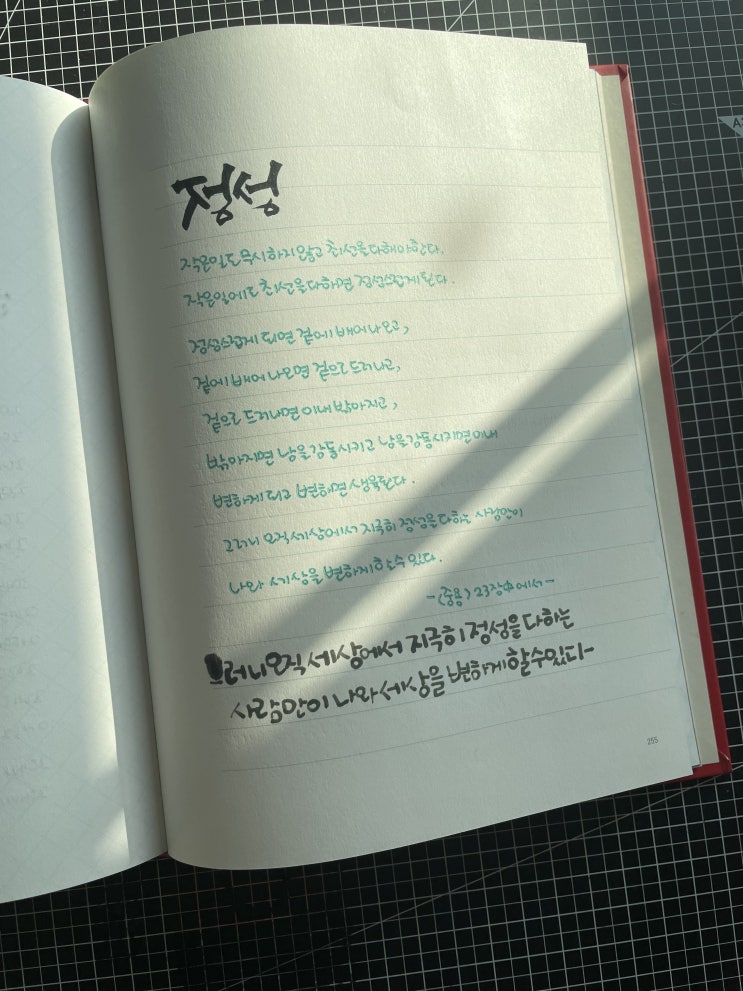 정성
작은일도 무시하지 않고 최선을 다해야 한다.
작은일에도 최선을 다하면 정성스럽게 된다.
정성스럽게 되면 겉에 배어나오고,
겉에 배어나오면 겉으로 드러나고,
겉으로 드러나면 이내 밝아지고,
밝아지면 남을 감동시키고 남을 감동시키면 이내
변하게 되고 변하면 생육된다.
그러니 오직 세상에서 지극히 정성을 다하는 사람만이
나와 세상을 변하게 할 수 있다.
-<중용> 23장中에서-
그러니 오직 세상에서 지극히 정성을 다하는
사람만이 나와 세상을 변하게 할 수 있다-
255